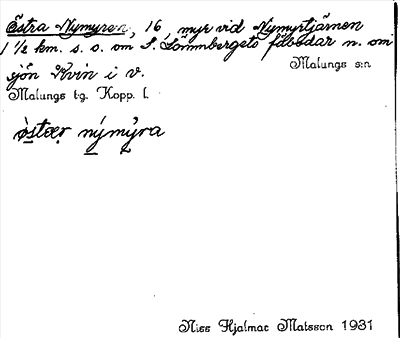 Östra Nymyren, 16, myr vid Nymyrtjärnen
1 ½ km. s. o. om S. Lömmbergets fäbodar n. om
sjön Kvin i v.
Malungs s:n
Malungs tg. Kopp. l.
ø̀stær nýmỳra
Niss Hjalmar Matsson 1931